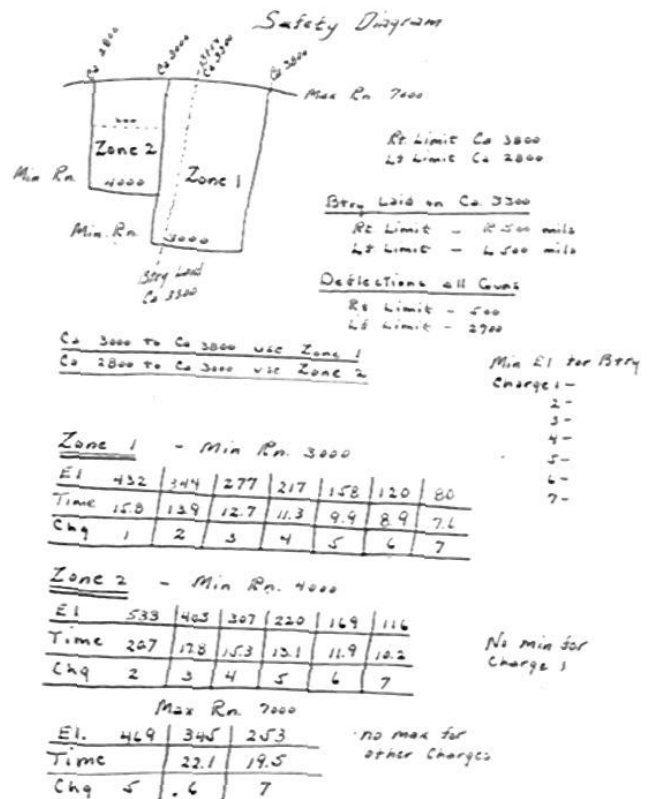 Safety Diagram
Ca 2800
Ca 3000
Ca 3300
Ca 3800
Max Rn 7000
Zone 2
4000
Min Rn.
Zone 1
Min. Rn.
3000
Btry Laid
Ca 3300
Rt Limit Ca 3800
Lt Limit Ca 2800
Btry Laid on Ca 3300
Rt Limit - R 500 mils
Lt Limit - L 500 mils
Deflections all Guns
Rt Limit - 500
Lt Limit - 2700
Ca 3000 to Ca 3800 use Zone 1
Ca 2800 to Ca 3000 use Zone 2
Min El for Btry
Charge 1 -
2 -
3 -
4 -
5 -
6 -
7 -
Zone 1 - Min Rn. 3000
El 432 344 277 217 158 120 80
Time 15.8 13.9 12.7 11.3 9.9 8.9 7.6
Chg 1 2 3 4 5 6 7
Zone 2 - Min Rn. 4000
El 533 403 307 220 169 116
Time 20.7 17.8 15.3 13.1 11.9 10.2
Chg 2 3 4 5 6 7
No min for
Charge 1
Max Rn. 7000
El. 469 345 253
Time 22.1 19.5
Chg 5 6 7
no max for
other Charges